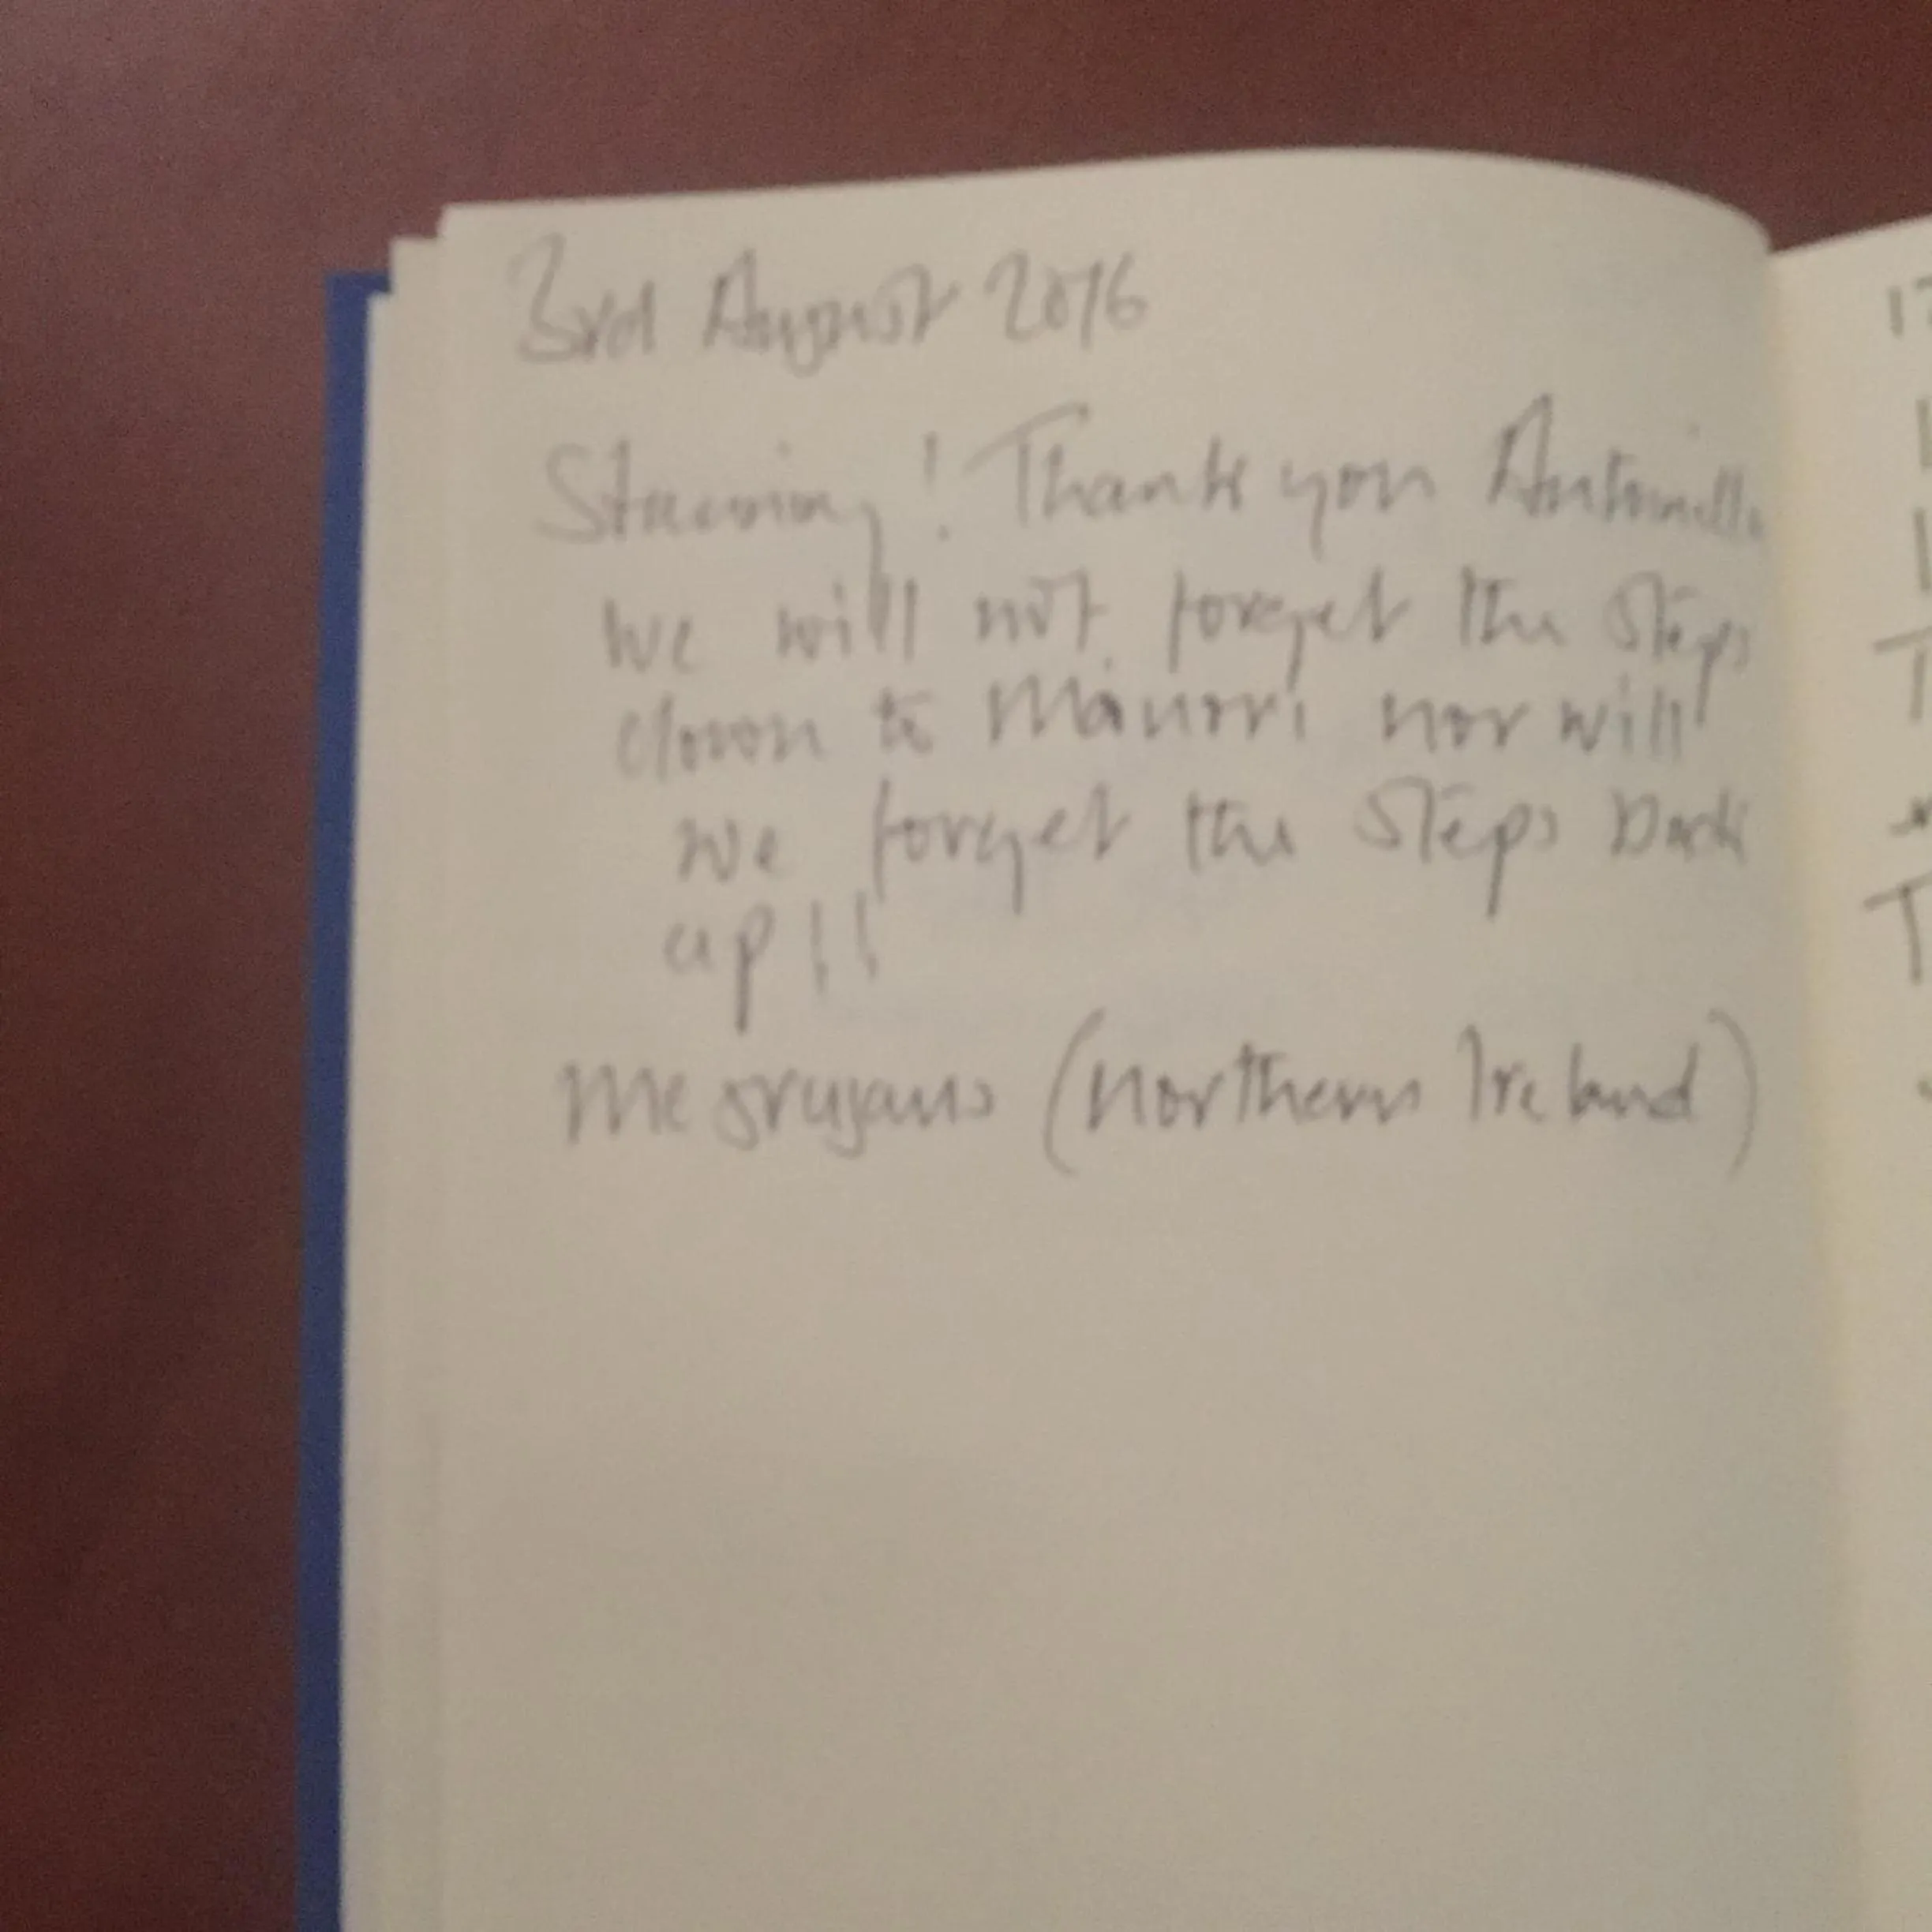 3rd August 2016
Stunning! Thank you Antonella
We will not forget the steps
down to Minori nor will
we forget the steps back
up!!
(Northern Ireland)